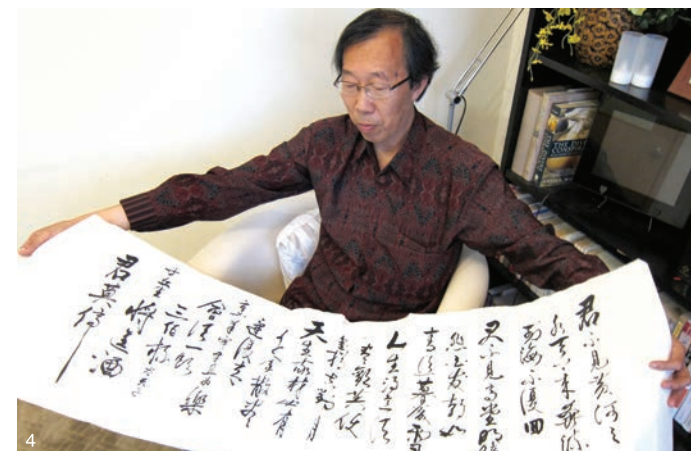 君不見黃河之
水天上来奔流
到海不復回
又不見高堂明
悲白发朝如
青絲暮成雪
人生得意須
盡歡莫使
金樽空對月
天生我材必有
用千金散盡
還復来
烹羊宰牛且為樂
會須一飲
三百杯岑夫子
丹丘生將進酒
君莫停
THE
4